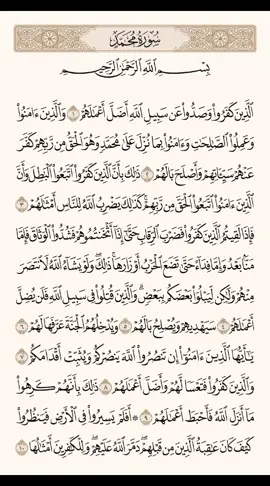 سُورَةُ مُحَمَّدٍ
بِسْمِ اللَّهِ الرَّحْمَٰنِ الرَّحِيمِ
الَّذِينَ كَفَرُوا وَصَدُّوا عَن سَبِيلِ اللَّهِ أَضَلَّ أَعْمَالَهُمْ ١ وَالَّذِينَ ءَامَنُوا
وَعَمِلُوا الصَّالِحَاتِ وَءَامَنُوا بِمَا نُزِّلَ عَلَىٰ مُحَمَّدٍ وَهُوَ الْحَقُّ مِن رَّبِّهِمْ كَفَّرَ
عَنْهُمْ سَيِّئَاتِهِمْ وَأَصْلَحَ بَالَهُمْ ٢ ذَٰلِكَ بِأَنَّ الَّذِينَ كَفَرُوا اتَّبَعُوا الْبَاطِلَ وَأَنَّ
الَّذِينَ ءَامَنُوا اتَّبَعُوا الْحَقَّ مِن رَّبِّهِمْ كَذَٰلِكَ يَضْرِبُ اللَّهُ لِلنَّاسِ أَمْثَالَهُمْ ٣
فَإِذَا لَقِيتُمُ الَّذِينَ كَفَرُوا فَضَرْبَ الرِّقَابِ حَتَّىٰ إِذَا أَثْخَنتُمُوهُمْ فَشُدُّوا الْوَثَاقَ فَإِمَّا
مَنًّا بَعْدُ وَإِمَّا فِدَاءً حَتَّىٰ تَضَعَ الْحَرْبُ أَوْزَارَهَا ذَٰلِكَ وَلَوْ يَشَاءُ اللَّهُ لَانتَصَرَ
مِنْهُمْ وَلَٰكِن لِّيَبْلُوَا بَعْضَكُم بِبَعْضٍ وَالَّذِينَ قُتِلُوا فِي سَبِيلِ اللَّهِ فَلَن يُضِلَّ
أَعْمَالَهُمْ ٤ سَيَهْدِيهِمْ وَيُصْلِحُ بَالَهُمْ ٥ وَيُدْخِلُهُمُ الْجَنَّةَ عَرَّفَهَا لَهُمْ ٦
يَا أَيُّهَا الَّذِينَ ءَامَنُوا إِن تَنصُرُوا اللَّهَ يَنصُرْكُمْ وَيُثَبِّتْ أَقْدَامَكُمْ ٧
وَالَّذِينَ كَفَرُوا فَتَعْسًا لَّهُمْ وَأَضَلَّ أَعْمَالَهُمْ ٨ ذَٰلِكَ بِأَنَّهُمْ كَرِهُوا
مَا أَنزَلَ اللَّهُ فَأَحْبَطَ أَعْمَالَهُمْ ٩ ۞ أَفَلَمْ يَسِيرُوا فِي الْأَرْضِ فَيَنظُرُوا
كَيْفَ كَانَ عَاقِبَةُ الَّذِينَ مِن قَبْلِهِمْ دَمَّرَ اللَّهُ عَلَيْهِمْ وَلِلْكَافِرِينَ أَمْثَالُهَا ١٠